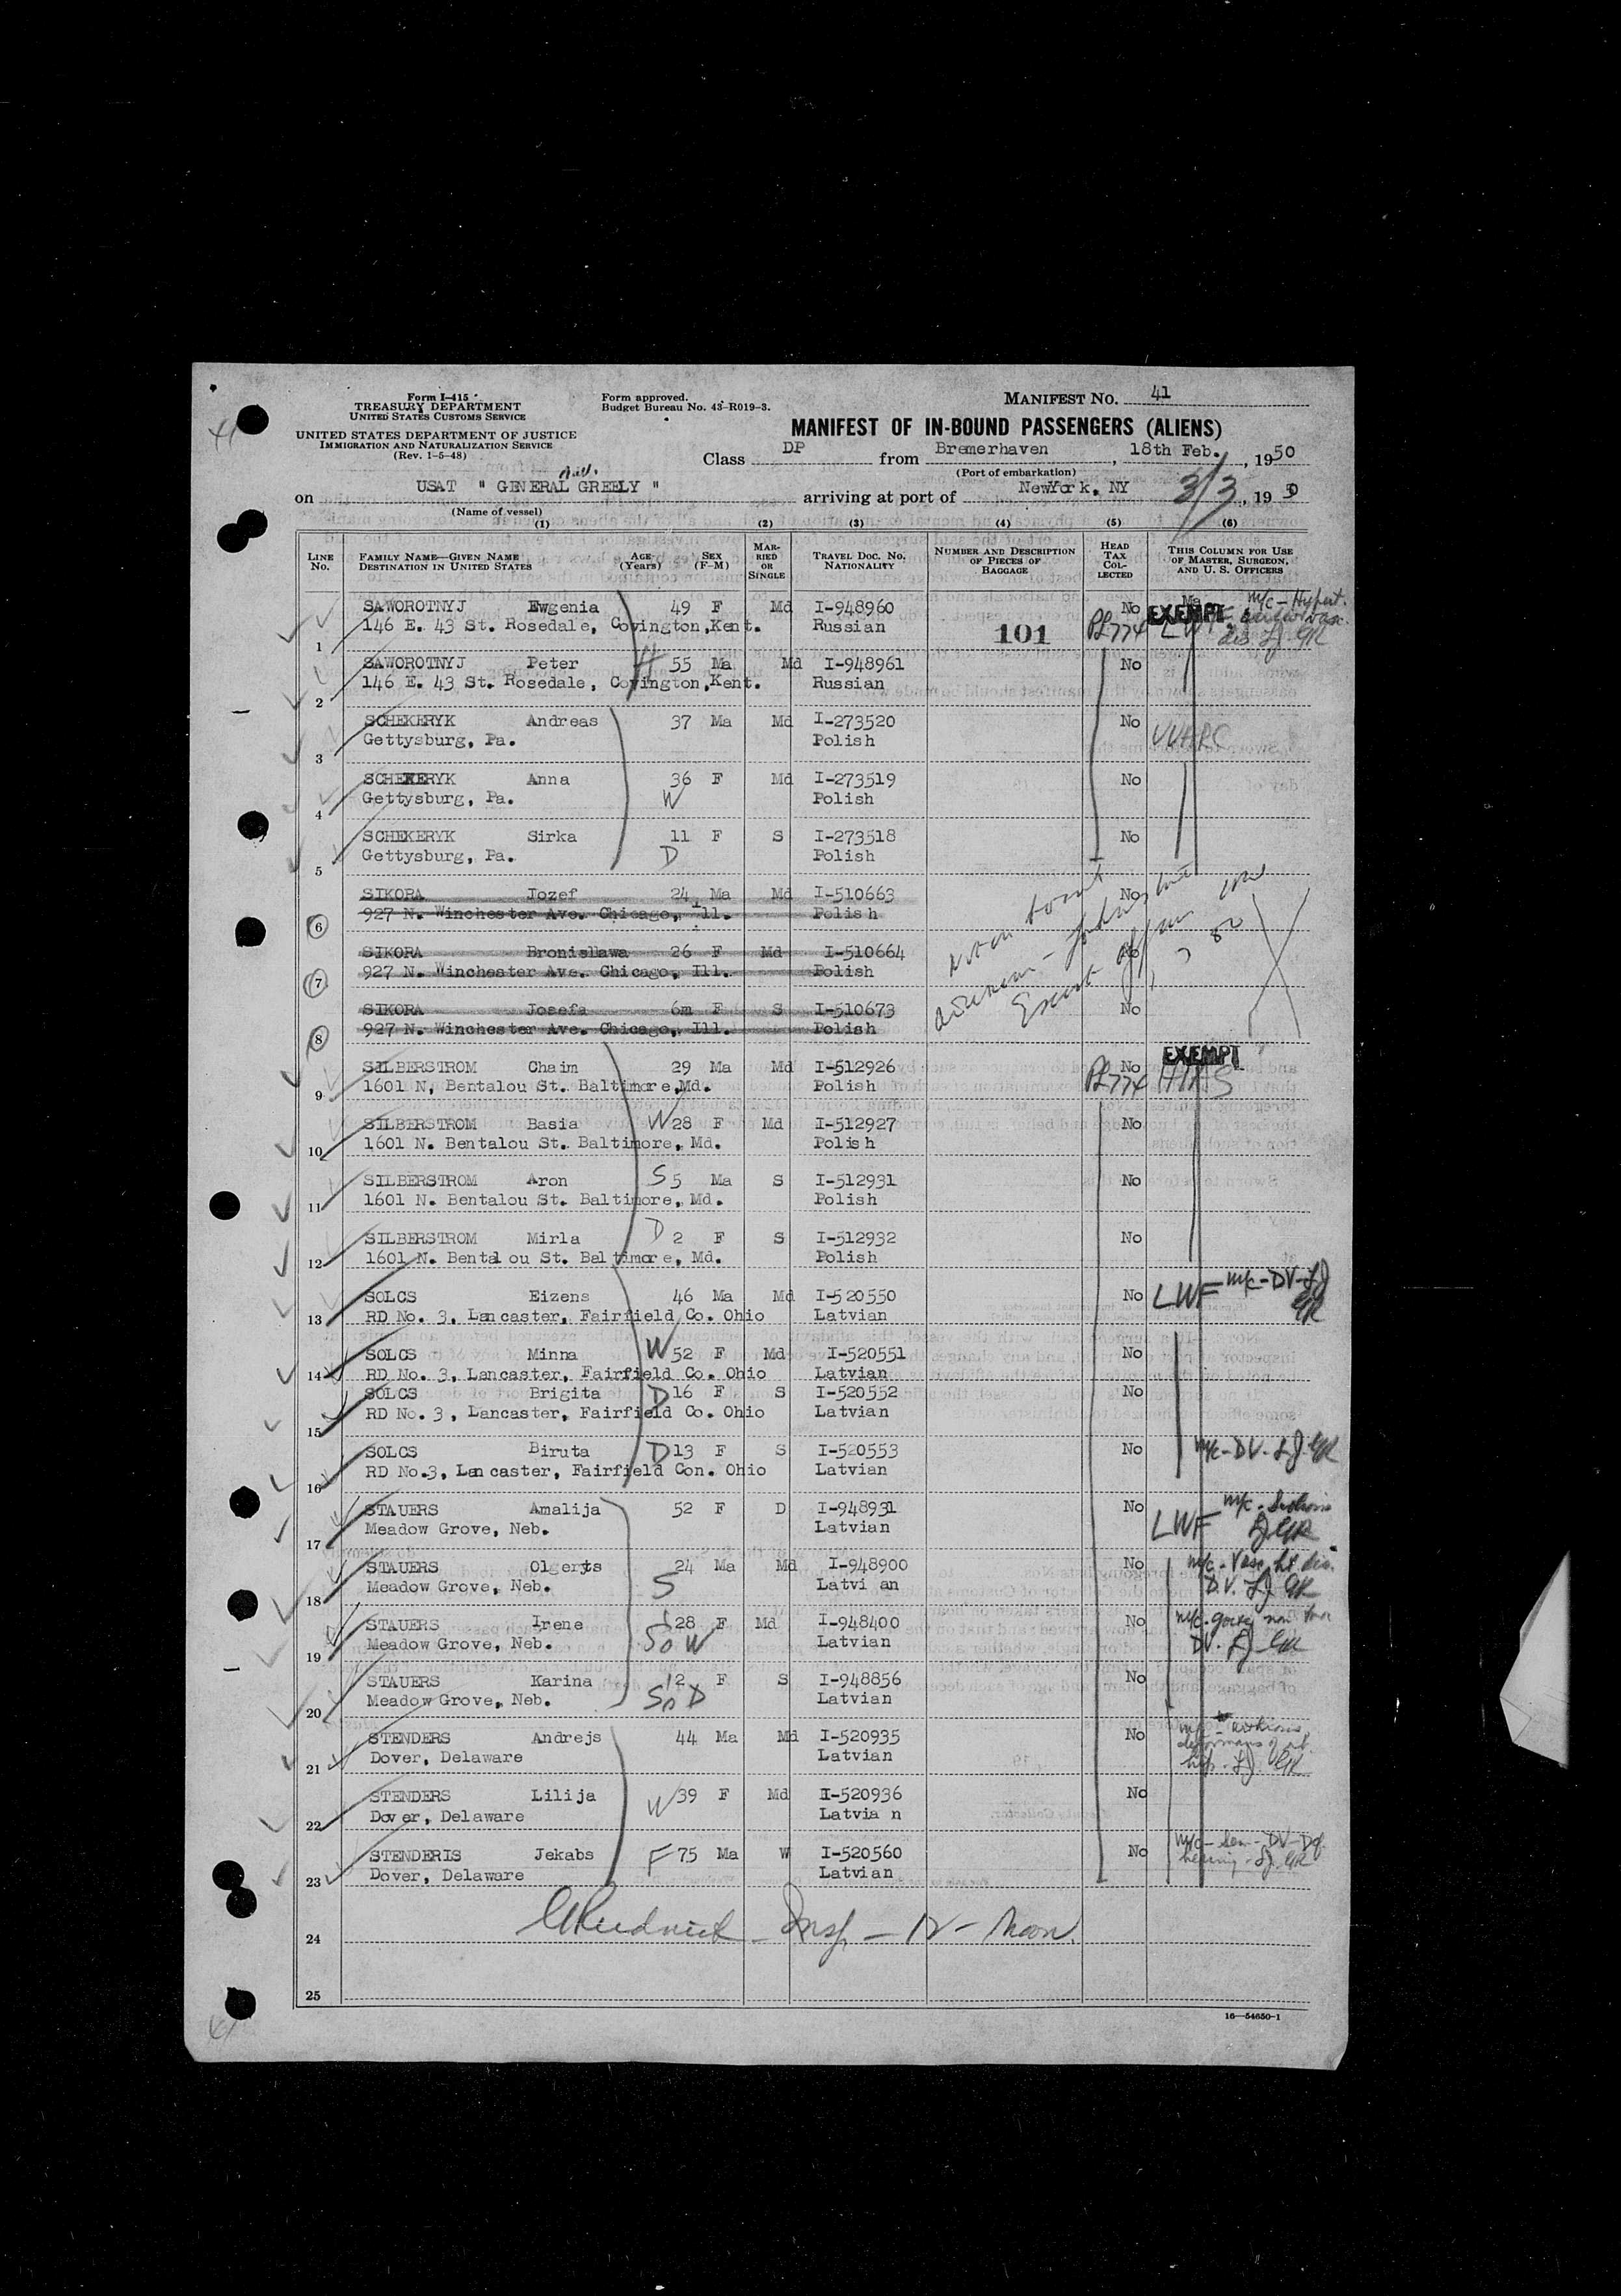 Form I-415
TREASURY DEPARTMENT
UNITED STATES CUSTOMS SERVICE
UNITED STATES DEPARTMENT OF JUSTICE
IMMIGRATION AND NATURALIZATION SERVICE
(Rev. 1-5-48)
Form approved.
Budget Bureau No. 43-R019-3.
MANIFEST No. 41
MANIFEST OF IN-BOUND PASSENGERS (ALIENS)
Class DP from Bremerhaven, 18th Feb., 1950
(Port of embarkation)
on USAT " GENERAL GREELY " arriving at port of NewYork, NY 3/3, 1950
(Name of vessel)
(1) (2) (3) (4) (5) (6)
LINE No. FAMILY NAME—GIVEN NAME DESTINATION IN UNITED STATES AGE (Years) SEX (F-M) MARRIED OR SINGLE TRAVEL DOC. No. NATIONALITY NUMBER AND DESCRIPTION OF PIECES OF BAGGAGE HEAD TAX COLLECTED THIS COLUMN FOR USE OF MASTER, SURGEON, AND U. S. OFFICERS
SAWOROTNYJ Ewgenia 49 F Md I-948960 No EXEMPT m/c - Hypert.
1 146 E. 43 St. Rosedale, Covington,Kent. Russian 101 PL774 LWF
SAWOROTNYJ Peter H 55 Ma Md I-948961 No
2 146 E. 43 St. Rosedale, Covington,Kent. Russian
SCHEKERYK Andreas 37 Ma Md I-273520 No
3 Gettysburg, Pa. Polish
SCHEKERYK Anna 36 F Md I-273519 No
4 Gettysburg, Pa. W Polish
SCHEKERYK Sirka 11 F S I-273518 No
5 Gettysburg, Pa. D Polish
SIKORA Jozef 24 Ma Md I-510663 No
6 927 N. Winchester Ave. Chicago, Ill. Polish
SIKORA Bronislawa 26 F Md I-510664 No
7 927 N. Winchester Ave. Chicago, Ill. Polish
SIKORA Josefa 6m F S I-510673 No
8 927 N. Winchester Ave. Chicago, Ill. Polish
SILBERSTROM Chaim 29 Ma Md I-512926 No EXEMPT
9 1601 N, Bentalou St. Baltimore,Md. Polish PL774 HIAS
SILBERSTROM Basia W 28 F Md I-512927 No
10 1601 N. Bentalou St. Baltimore, Md. Polish
SILBERSTROM Aron S 5 Ma S I-512931 No
11 1601 N. Bentalou St. Baltimore, Md. Polish
SILBERSTROM Mirla D 2 F S I-512932 No
12 1601 N. Bentalou St. Baltimore, Md. Polish
SOLCS Eizens 46 Ma Md I-520550 No LWF m/c-DV-LJ GR
13 RD No. 3, Lancaster, Fairfield Co. Ohio Latvian
SOLCS Minna W 52 F Md I-520551 No
14 RD No. 3, Lancaster, Fairfield Co. Ohio Latvian
SOLCS Brigita D 16 F S I-520552 No
15 RD No. 3, Lancaster, Fairfield Co. Ohio Latvian
SOLCS Biruta D 13 F S I-520553 No m/c-DV-LJ-GR
16 RD No.3, Lancaster, Fairfield Con. Ohio Latvian
STAUERS Amalija 52 F D I-948931 No LWF
17 Meadow Grove, Neb. Latvian
STAUERS Olgerts 24 Ma Md I-948900 No
18 Meadow Grove, Neb. S Latvian
STAUERS Irene 28 F Md I-948400 No
19 Meadow Grove, Neb. So W Latvian
STAUERS Karina 2 F S I-948856 No
20 Meadow Grove, Neb. So D Latvian
STENDERS Andrejs 44 Ma Md I-520935 No
21 Dover, Delaware Latvian
STENDERS Lilija W 39 F Md I-520936 No
22 Dover, Delaware Latvian
STENDERIS Jekabs F 75 Ma W I-520560 No
23 Dover, Delaware Latvian
24
25
16—54650-1